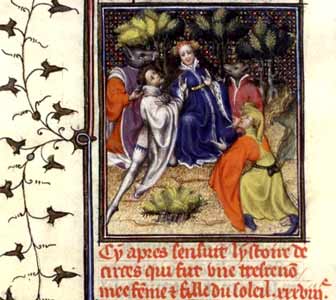 Cy apres sensuit lystoire de
circes qui fut vne tresrenō
mee fēme & fille du soleil. xxxviiᵉ.